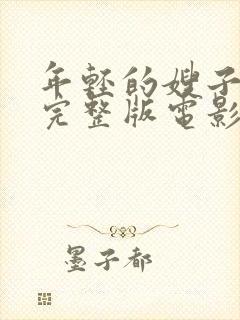 年轻的嫂子
完整版电影
墨子都